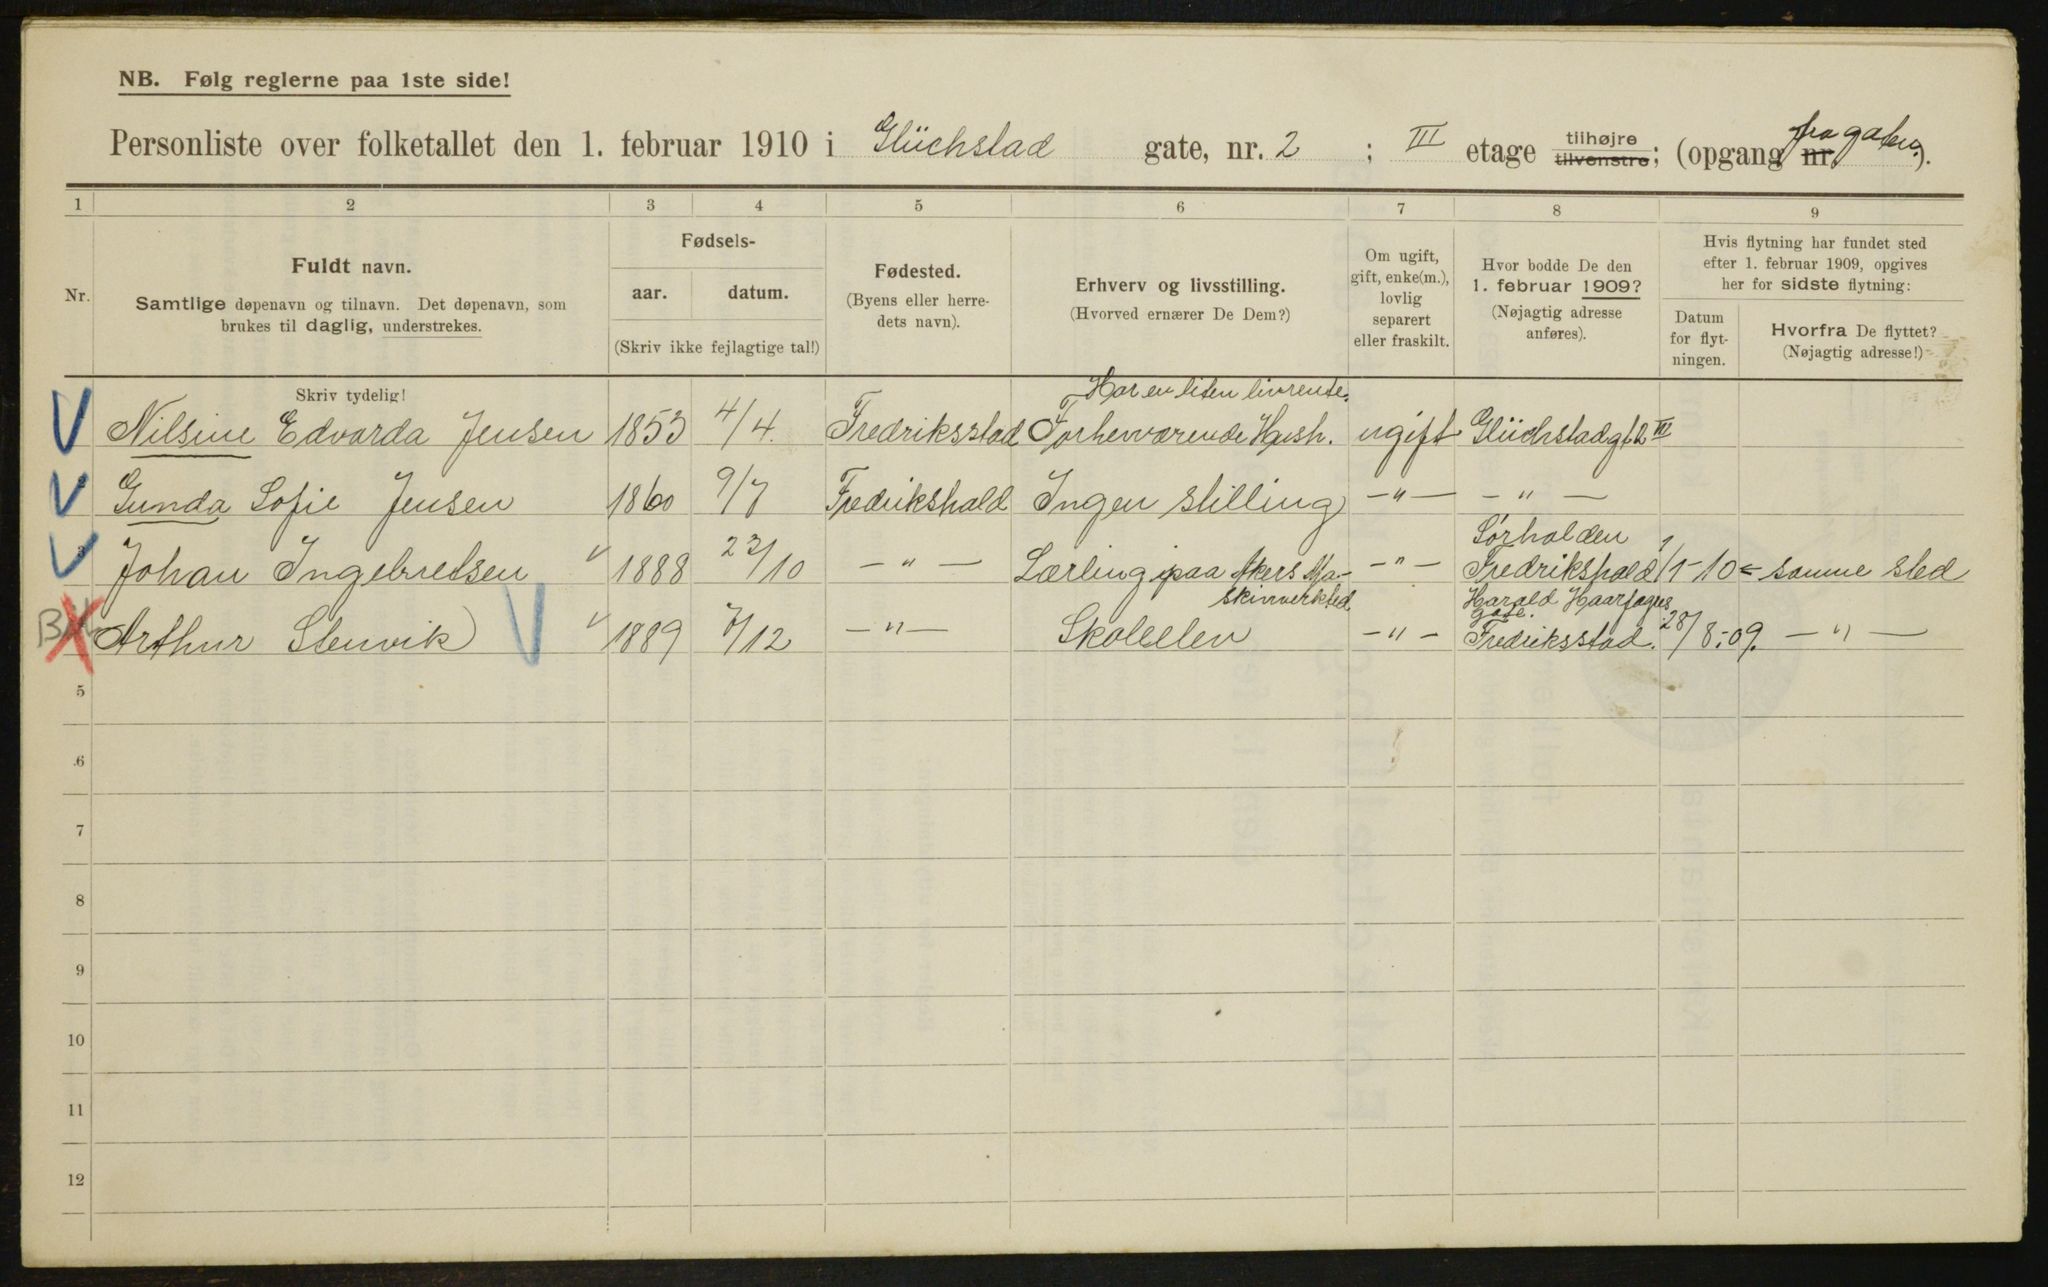 NB. Følg reglerne paa 1ste side!
Personliste over folketallet den 1. februar 1910 i Glüchstad gate, nr. 2 ; III etage tilhøjre tilvenstre; (opgang nr. fra gaten.).
1 2 3 4 5 6 7 8 9
Nr.
Fuldt navn.
Samtlige døpenavn og tilnavn. Det døpenavn, som
brukes til daglig, understrekes.
Fødsels-
aar. datum.
(Skriv ikke fejlagtige tal!)
Fødested.
(Byens eller herre-
dets navn).
Erhverv og livsstilling.
(Hvorved ernærer De Dem?)
Om ugift,
gift, enke(m.),
lovlig
separert
eller fraskilt.
Hvor bodde De den
1. februar 1909?
(Nøjagtig adresse
anføres).
Hvis flytning har fundet sted
efter 1. februar 1909, opgives
her for sidste flytning:
Datum
for flyt-
ningen.
Hvorfra De flyttet?
(Nøjagtig adresse!)
Skriv tydelig!
Har en liten livrente.
Nilsine Edvarda Jensen 1853 4/4. Fredriksstad Forhenværende Hush. ugift Glüchstadgt. 2 III
Gunda Sofie Jensen 1860 9/7 Fredrikshald Ingen stilling —"— —"—
Sørhalden
3 Johan Ingebretsen 1888 23/10 —"— Lærling paa Akers Ma- —"— Fredrikshald 1/1-10 samme sted
skinverksted.
Harald Haarfagres
gate.
Arthur Stenvik 1889 7/12 —"— Skoleelev —"— Fredriksstad. 28/8.-09. —"—
5
6
7
8
9
10
11
12